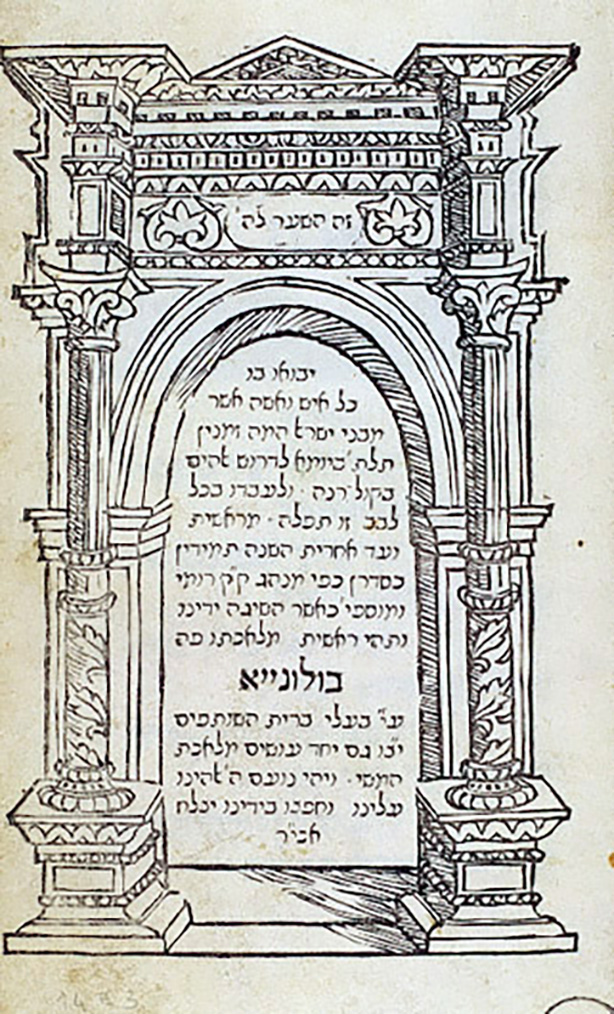 זה השער לה'
יבואו בו
כל איש ואשה אשר
מבני ישרא' המה זמנין
תלת' ביומא לדרוש ﭏהים
בקול רנה · ולעבדו בכל
לבב זו תפלה · מראשית
ועד אחרית השנה תמידין
כסדרן כפי מנהג ק"ק רומי
ומוספי' כאשר השיגה ידינו
ותהי ראשית מלאכתנו פה
בולונייא
ע"י בעלי ברית השותפים
יצ"ו גם יחד עושים מלאכת
המשי · ויהי נועם ה' ﭏהינו
עלינו וחפצו בידינו יצלח
אכי"ר